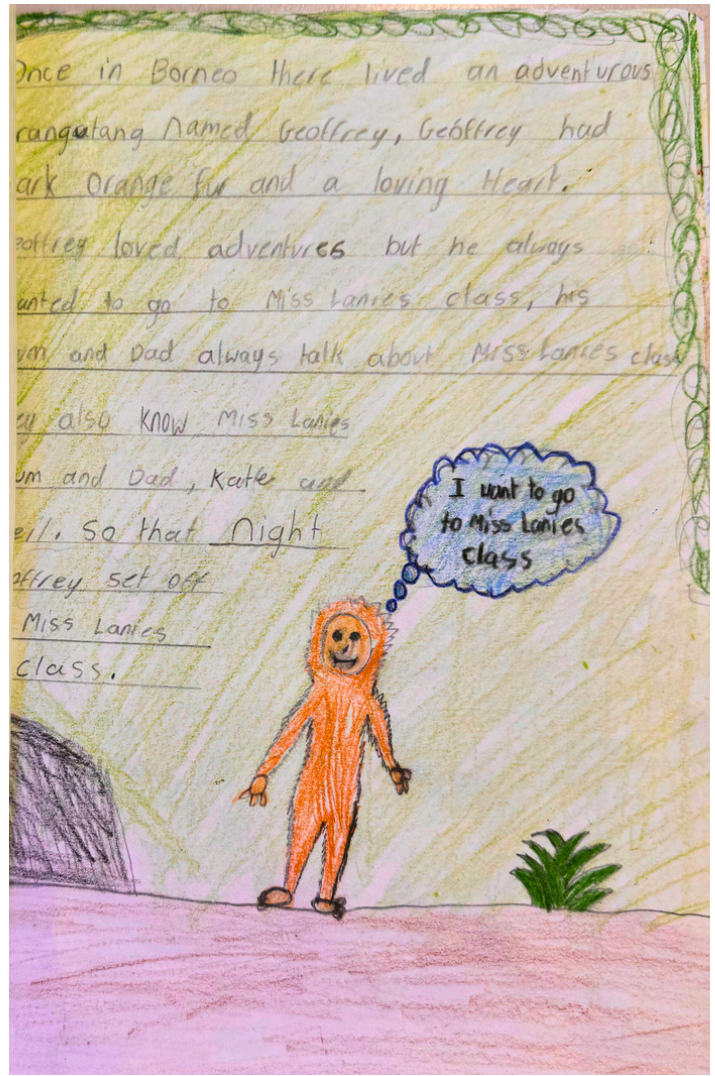 Once in Borneo there lived an adventurous
rangatang named Geoffrey, Geoffrey had
ark Orange fur and a loving Heart.
eoffrey loved adventures but he always
anted to go to Miss Lanies class, his
um and Dad always talk about Miss Lanies class
ey also know Miss Lanies
um and Dad, Katie and
eil. So that night
offrey set off
Miss Lanies
class.
I want to go
to Miss Lanies
class